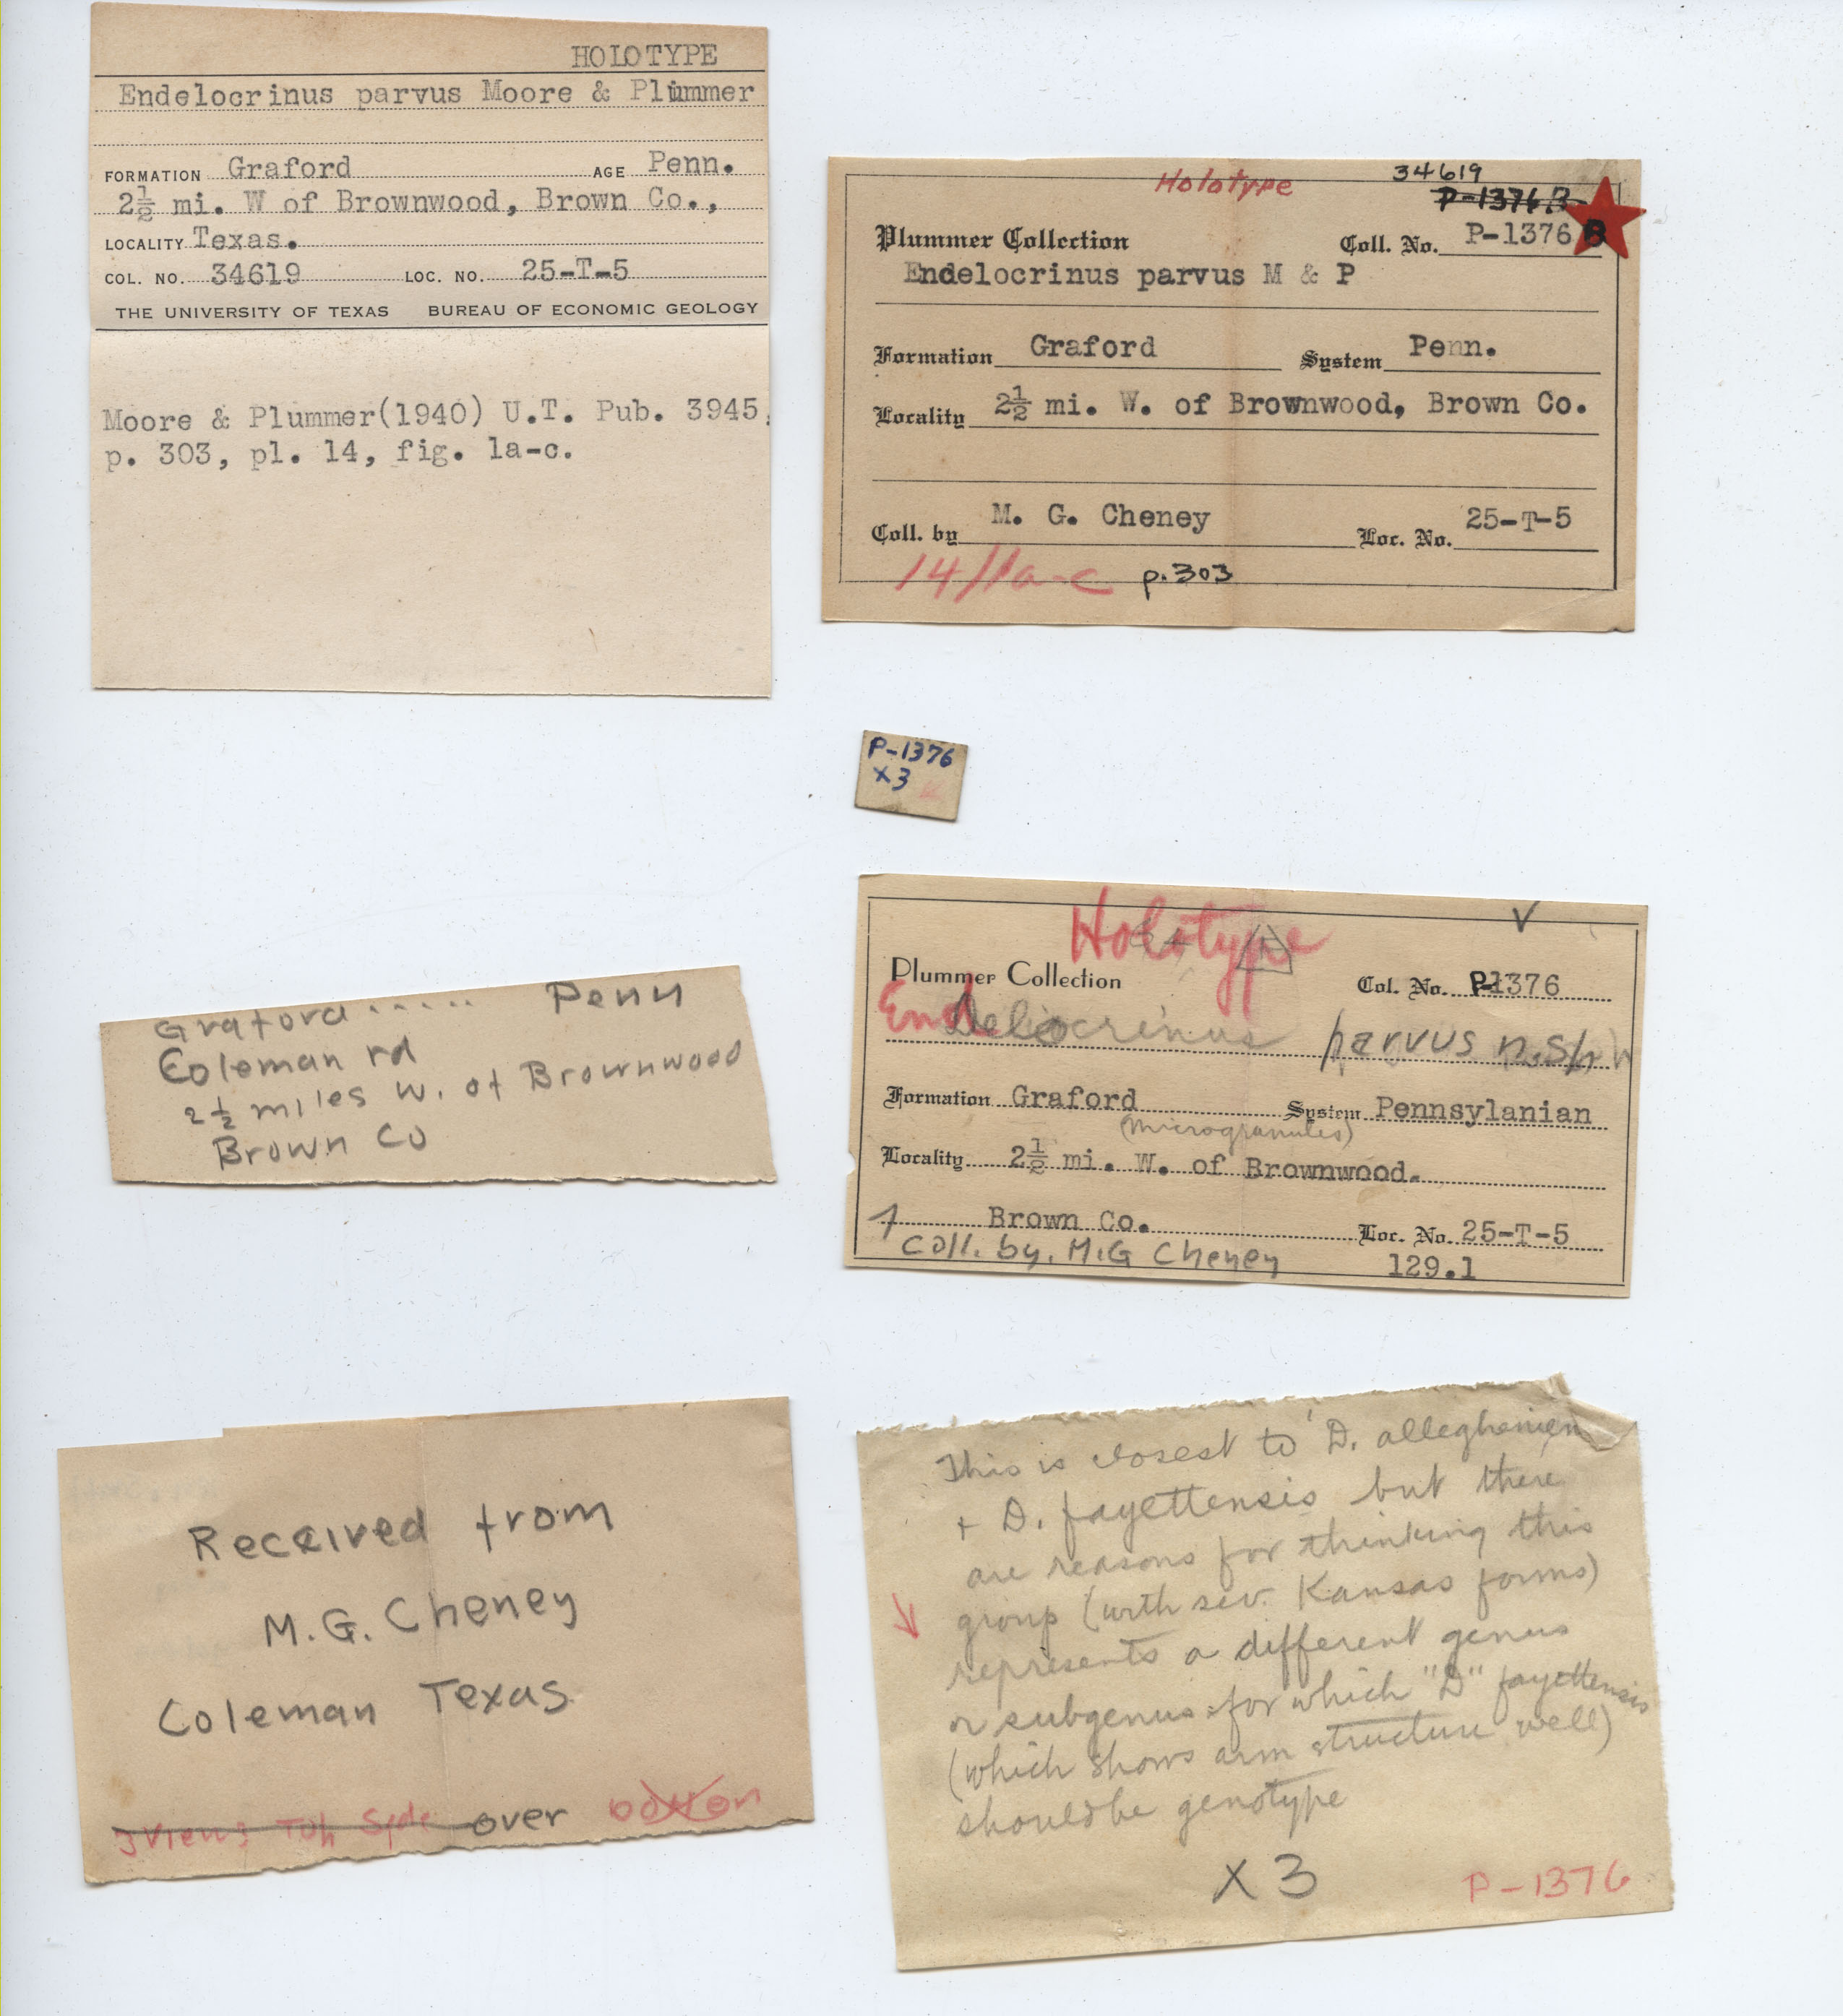 HOLOTYPE
Endelocrinus parvus Moore & Plummer
FORMATION Graford AGE Penn.
2½ mi. W of Brownwood, Brown Co.,
LOCALITY Texas.
COL. NO. 34619 LOC. NO. 25-T-5
THE UNIVERSITY OF TEXAS BUREAU OF ECONOMIC GEOLOGY
Moore & Plummer(1940) U.T. Pub. 3945,
p. 303, pl. 14, fig. 1a-c.
Holotype 34619
P-1376B
Plummer Collection Coll. No. P-1376 B
Endelocrinus parvus M & P
Formation Graford System Penn.
Locality 2½ mi. W. of Brownwood, Brown Co.
Coll. by M. G. Cheney Loc. No. 25-T-5
14/1a-c p.303
P-1376
x3
Holotype
Plummer Collection Col. No. P-1376
Endelocrinus parvus n.sp
Formation Graford System Pennsylanian
(microgranules)
Locality 2½ mi. W. of Brownwood.
Brown Co. Loc. No. 25-T-5
Coll. by. M.G Cheney 129.1
Graford ..... Penn
Coleman rd
2½ miles W. of Brownwood
Brown Co
Received from
M.G. Cheney
Coleman Texas
3 Views Top Side over
This is closest to D. alleghenien
+ D. fayettensis but there
are reasons for thinking this
group (with sev. Kansas forms)
represents a different genus
or subgenus for which "D" fayettensis
(which shows arm structure well)
should be genotype
x 3 P-1376